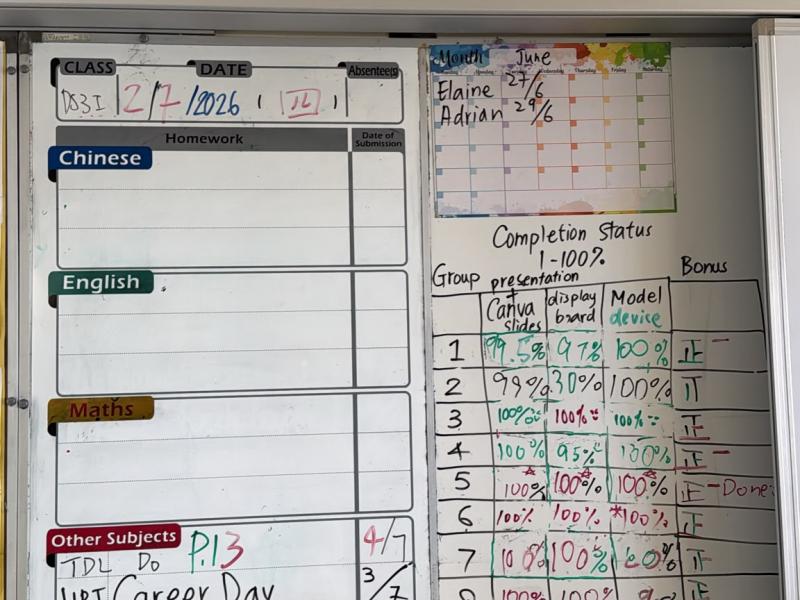 CLASS DATE Absentees
DS3I 2/7/2026 ( II )
Homework Date of Submission
Chinese
English
Maths
Other Subjects
TDL Do P.13 4/7
Career Day 3/7
Month June
Elaine 27/6
Adrian 29/6
Completion Status
1-100%
Group presentation Bonus
Canva slides display board Model device
1 99.5% 97% 100% 正一
2 99% 30% 100%
3 100% 100% 100% 正
4 100% 95% 100% 正一
5 100% 100% 100% 正一 Done
6 100% 100% *100% 正
7 100% 100% 正
100% 100%